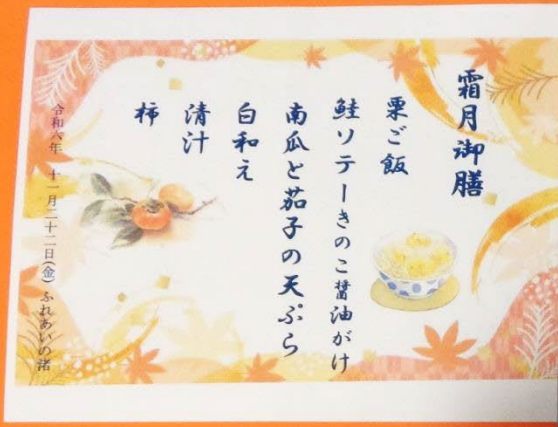 霜月御膳
栗ご飯
鮭ソテーきのこ醤油がけ
南瓜と茄子の天ぷら
白和え
清汁
柿
令和六年 十一月二十二日(金) ふれあいの渚